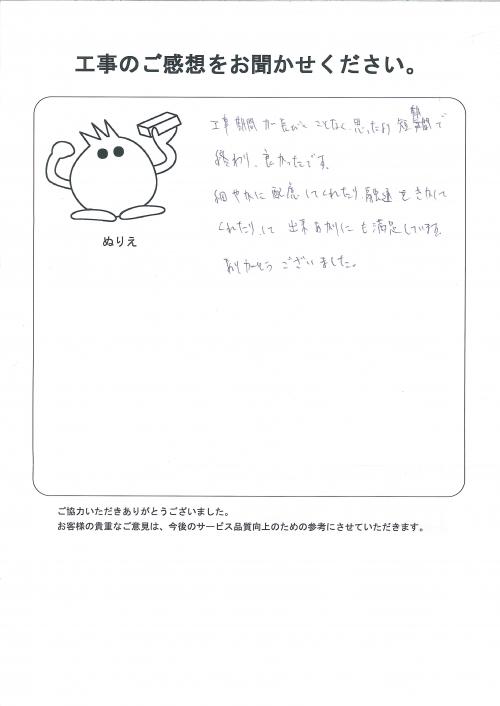 工事のご感想をお聞かせください。
工事期間が長びくことなく、思ったより短期間で
終わり、良かったです。
細やかに配慮してくれたり、融通をきかして
くれたりして 出来あがりにも満足しています。
ありがとうございました。
ぬりえ
ご協力いただきありがとうございました。
お客様の貴重なご意見は、今後のサービス品質向上のための参考にさせていただきます。